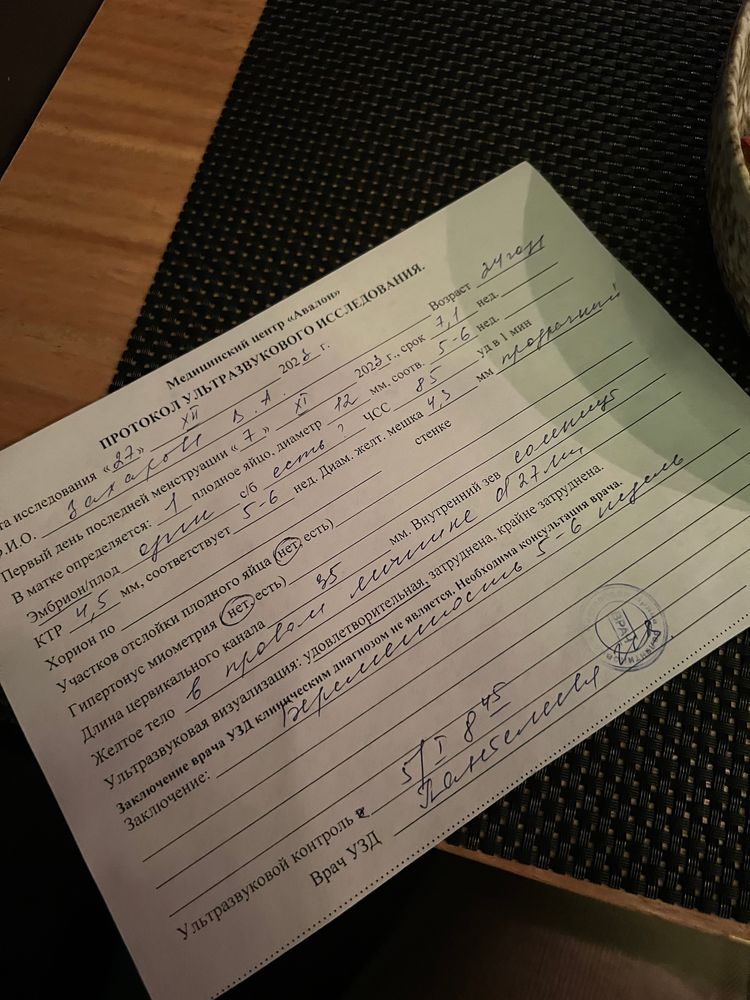 Медицинский центр «Авалон»
ПРОТОКОЛ УЛЬТРАЗВУКОВОГО ИССЛЕДОВАНИЯ.
та исследования «27» XII 2023 г.
Ф.И.О. В. А. Возраст 24 года
Первый день последней менструации «7» XI 2023 г., срок 7,1 нед.
В матке определяется: 1 плодное яйцо, диаметр 12 мм, соотв. 5-6 нед.
Эмбрион/плод один с/б есть? ЧСС 85 уд в 1 мин
КТР 4,5 мм, соответствует 5-6 нед. Диам. желт. мешка 4,3 мм прозрачный
Хорион по стенке
Участков отслойки плодного яйца (нет, есть)
Гипертонус миометрия (нет, есть)
Длина цервикального канала 35 мм. Внутренний зев сомкнут
Желтое тело в правом яичнике d 27 мм
Ультразвуковая визуализация: удовлетворительная, затруднена, крайне затруднена.
Заключение врача УЗД клиническим диагнозом не является. Необходима консультация врача.
Заключение: Беременность 5-6 недель
Ультразвуковой контроль 5/I 8 45
Врач УЗД
ВРАЧ